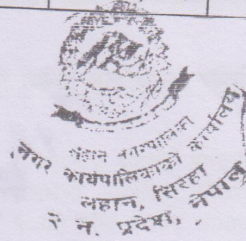 लहान नगरपालिका
नगर कार्यपालिकाको कार्यालय
लहान, सिरहा
२ नं. प्रदेश, नेपाल